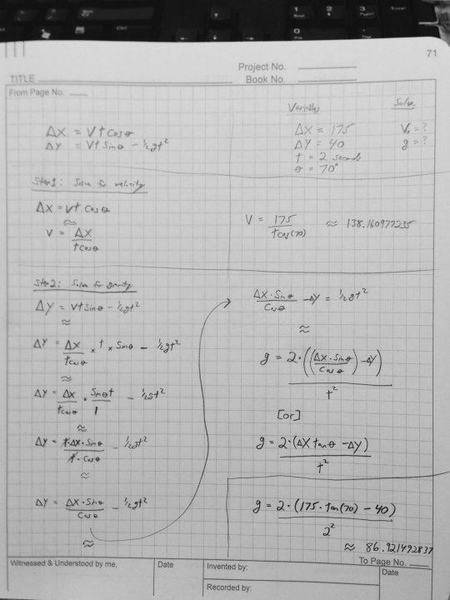 71
Project No.
TITLE
Book No.
From Page No.
Variables
Solve
Δx = Vt cosθ
Δy = Vt sinθ - ½gt²
Δx = 175
Δy = 40
t = 2 seconds
θ = 70°
V₀ = ?
g = ?
Step 1: Solve for velocity
Δx = vt cosθ
≈
V = Δx / t cosθ
V = 175 / t cos(70) ≈ 128.160977235
Step 2: Solve for gravity
Δy = Vt sinθ - ½gt²
≈
Δy = Δx / t cosθ × t × sinθ - ½gt²
≈
Δy = Δx / t cosθ • sinθt / 1 - ½gt²
≈
Δy = t•Δx•sinθ / t•cosθ - ½gt²
≈
Δy = Δx•sinθ / cosθ - ½gt²
≈
Δx•sinθ / cosθ - Δy = ½gt²
≈
g = 2•((Δx•sinθ / cosθ) - Δy) / t²
[or]
g = 2•(Δx tanθ - Δy) / t²
g = 2•(175•tan(70) - 40) / 2²
≈ 86.921492837
Witnessed & Understood by me,
Date
Invented by:
Recorded by:
To Page No.
Date